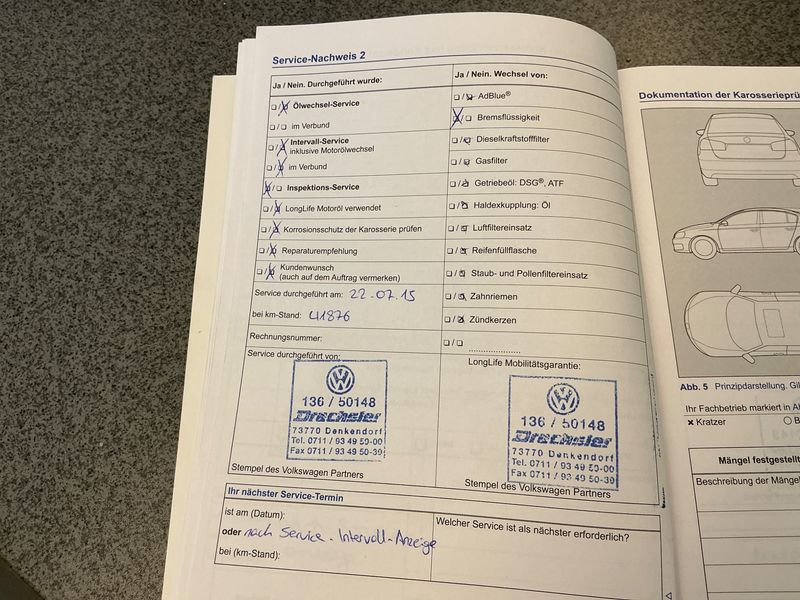 Service-Nachweis 2
Ja / Nein. Durchgeführt wurde:
Ölwechsel-Service
im Verbund
Intervall-Service
inklusive Motorölwechsel
im Verbund
Inspektions-Service
LongLife Motoröl verwendet
Korrosionsschutz der Karosserie prüfen
Reparaturempfehlung
Kundenwunsch
(auch auf dem Auftrag vermerken)
Service durchgeführt am: 22.07.15
bei km-Stand: 41876
Rechnungsnummer:
Service durchgeführt von:
136 / 50148
Drechsler
73770 Denkendorf
Tel. 0711 / 93 49 50-00
Fax 0711 / 93 49 50-30
Stempel des Volkswagen Partners
Ja / Nein. Wechsel von:
AdBlue®
Bremsflüssigkeit
Dieselkraftstofffilter
Gasfilter
Getriebeöl: DSG®, ATF
Haldexkupplung: Öl
Luftfiltereinsatz
Reifenfüllflasche
Staub- und Pollenfiltereinsatz
Zahnriemen
Zündkerzen
LongLife Mobilitätsgarantie:
136 / 50148
Drechsler
73770 Denkendorf
Tel. 0711 / 93 49 50-00
Fax 0711 / 93 49 50-30
Stempel des Volkswagen Partners
Ihr nächster Service-Termin
ist am (Datum):
oder nach Service-Intervall-Anzeige
bei (km-Stand):
Welcher Service ist als nächster erforderlich?
Dokumentation der Karosserieprü
Abb. 5 Prinzipdarstellung.
Ihr Fachbetrieb markiert in
Kratzer
Mängel festgestellt
Beschreibung der Mängel